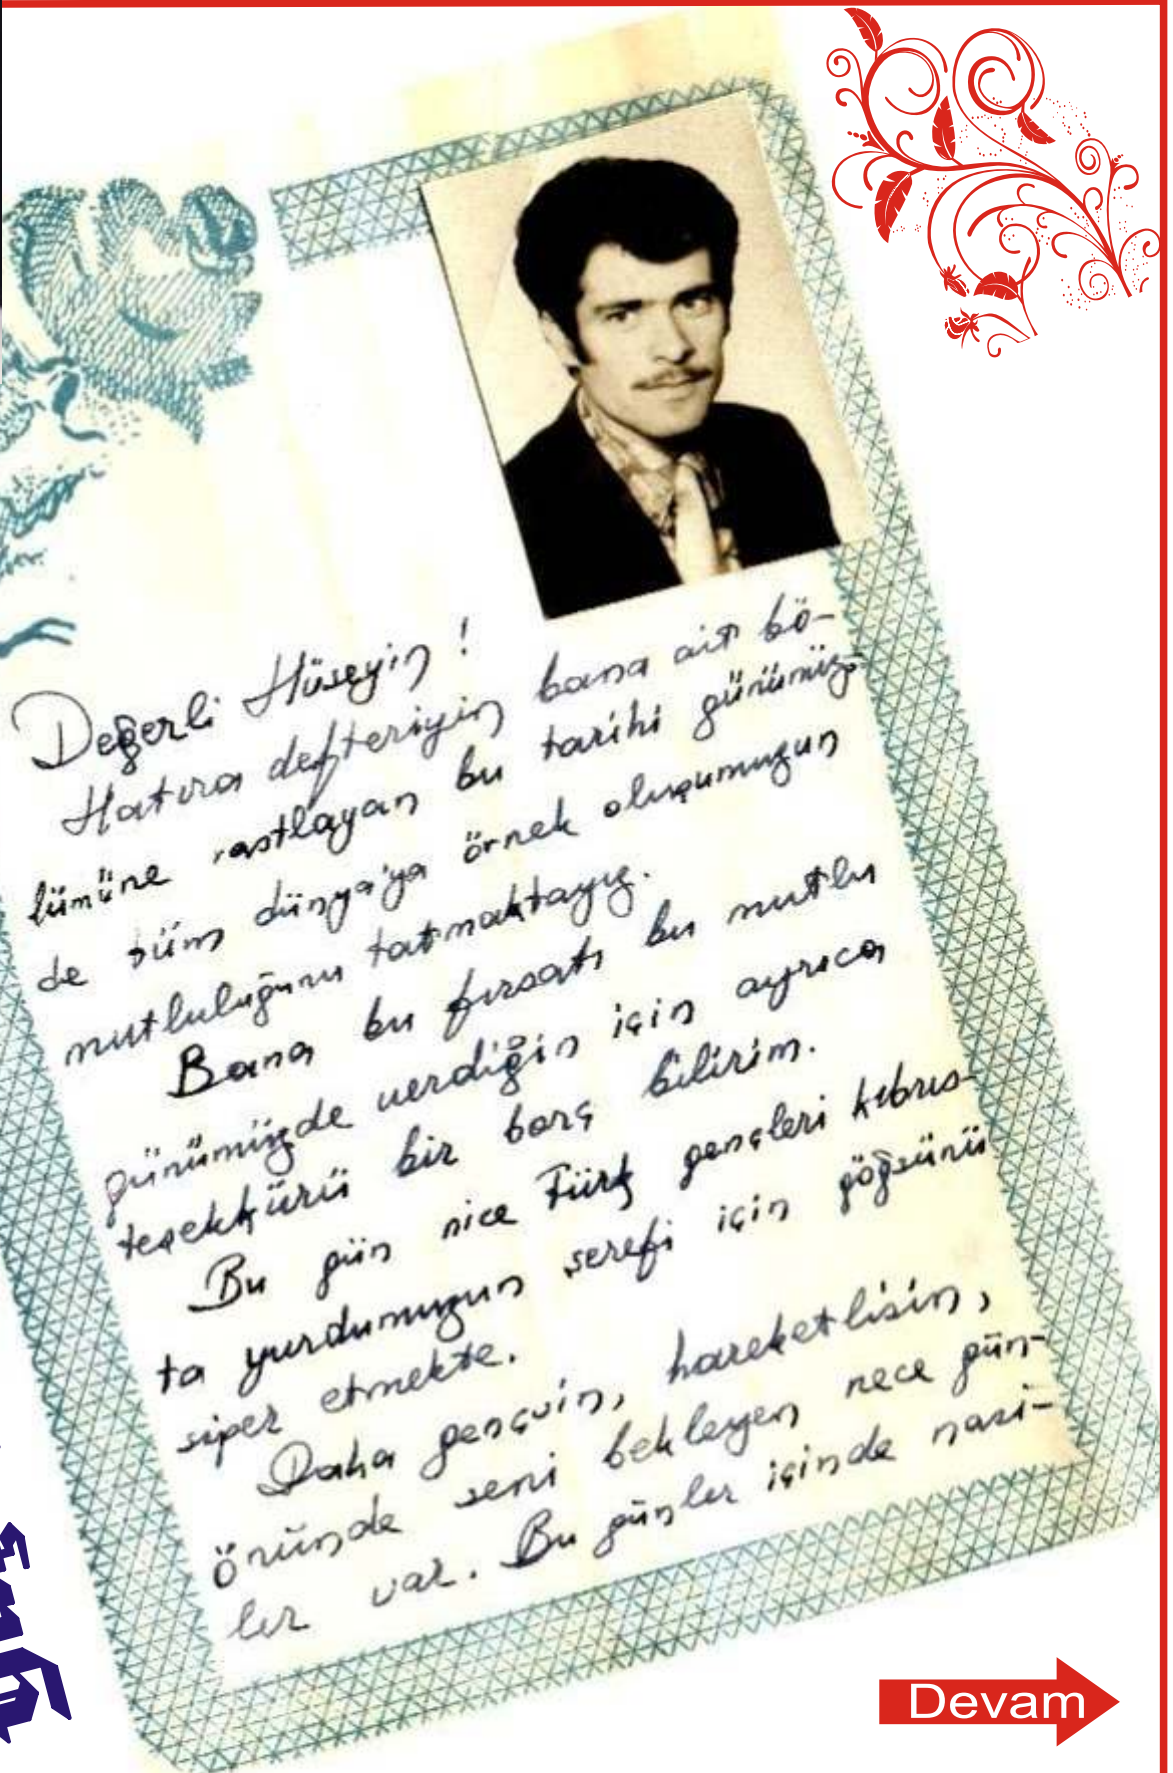 Değerli Hüseyin !
Hatıra defteriyin bana ait bö-
lümüne rastlayan bu tarihi günümüz-
de tüm dünya'ya örnek oluşumuzun
mutluluğunu tatmaktayız.
Bana bu fırsatı bu mutlu
günümüzde verdiğin için ayrıca
teşekkürü bir borç bilirim.
Bu gün nice Türk gençleri kıbrıs-
ta yurdumuzun şerefi için göğsünü
siper etmekte.
Daha gençsin, hareketlisin,
önünde seni bekleyen nece gün-
ler var. Bu günler içinde nasi-
Devam